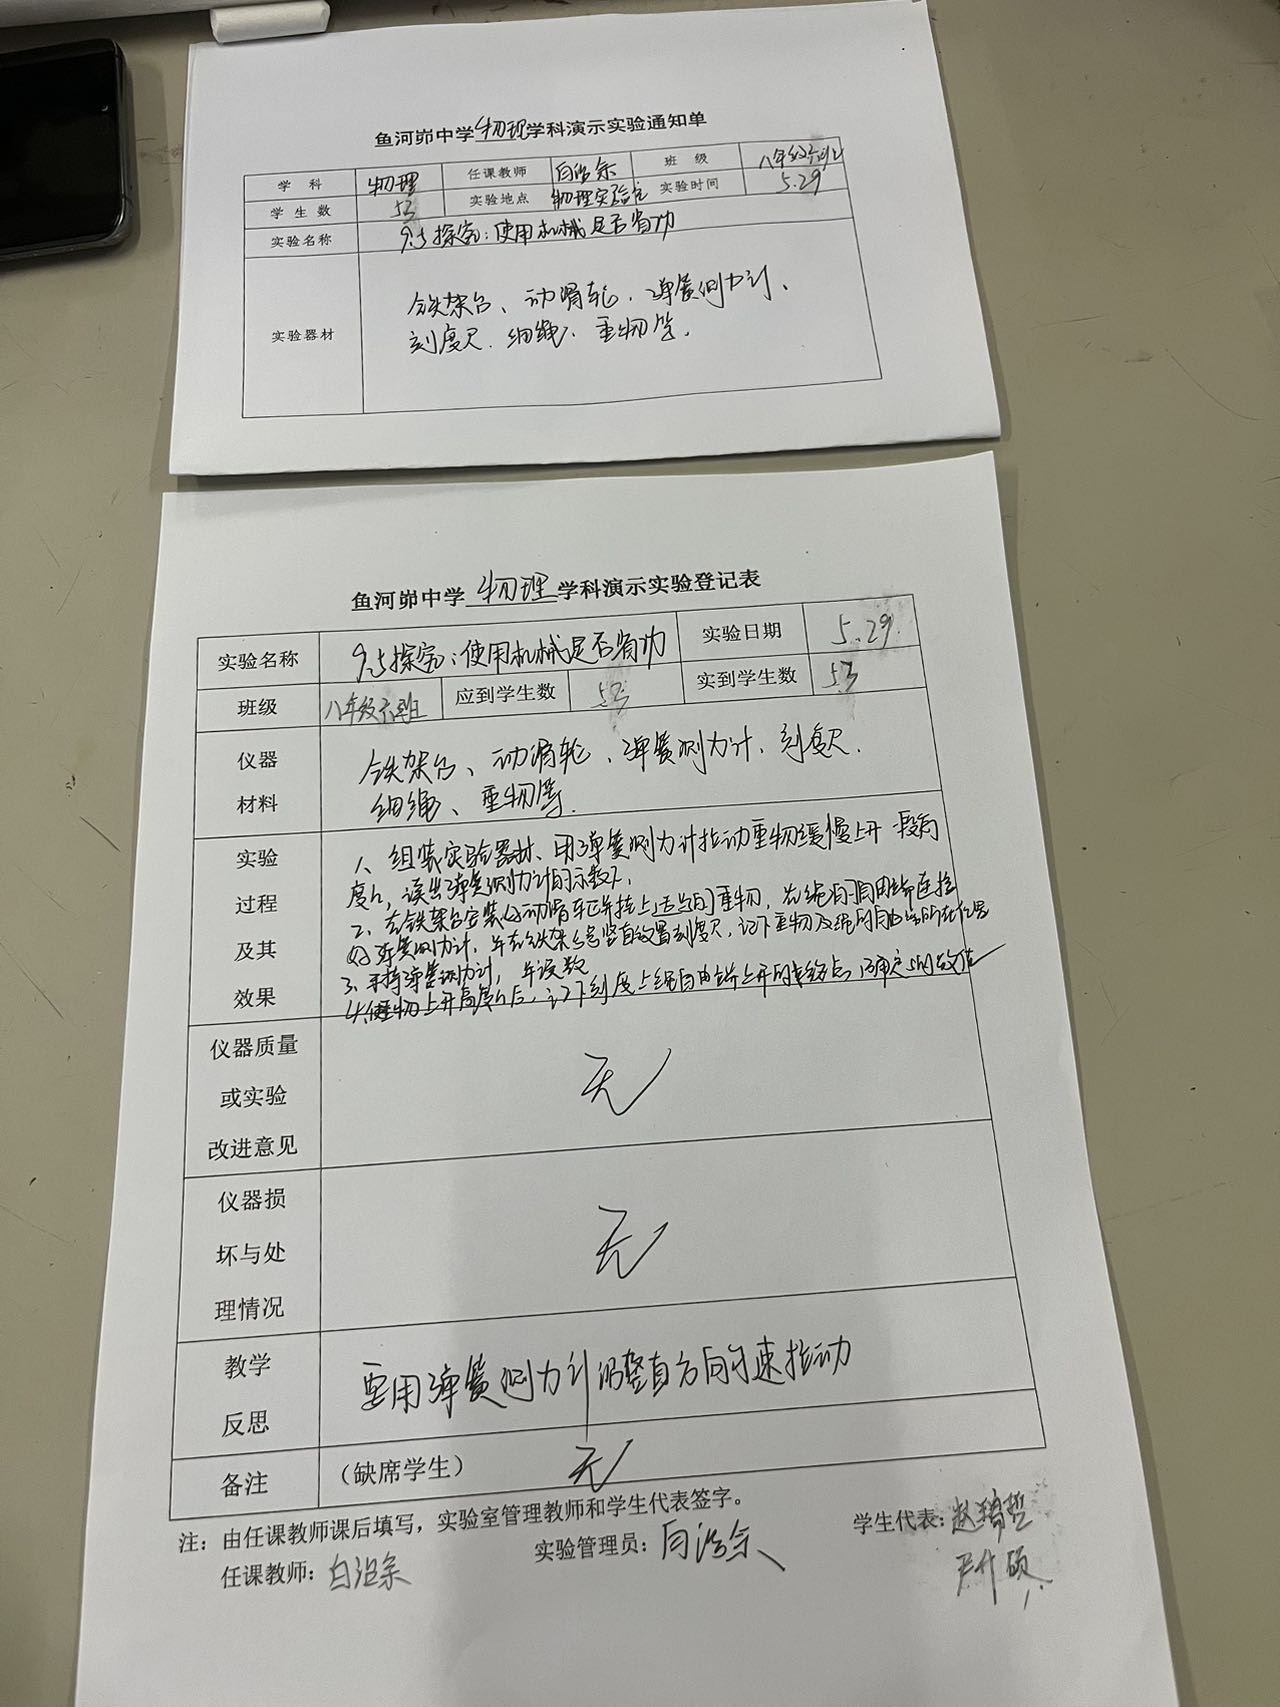 鱼河峁中学物理学科演示实验通知单
学 科 物理 任课教师 班 级 八年级六班
学 生 数 53 实验地点 物理实验室 实验时间 5.29
实验名称 9.5探究：使用机械是否省功
实验器材 铁架台、动滑轮、弹簧测力计、
刻度尺、细绳、重物等.
鱼河峁中学 物理 学科演示实验登记表
实验名称 9.5探究：使用机械是否省功 实验日期 5.29
班级 八年级六班 应到学生数 53 实到学生数 53
仪器材料 铁架台、动滑轮、弹簧测力计、刻度尺.
细绳、重物等.
实验过程及其效果
1、组装实验器材、用弹簧测力计拉动重物缓慢上升一段高
度h，读出弹簧测力计的示数.
2、在铁架台安装好动滑轮并挂上适当的重物，在绳的自由端连接
好弹簧测力计，并在铁架台竖直放置刻度尺，记下重物及绳的自由端所在位置
3、手持弹簧测力计，并读数
4、使重物上升高度h后，记下刻度上绳自由端上升的终点，确定s的数值
仪器质量或实验改进意见 无
仪器损坏与处理情况 无
教学反思 要用弹簧测力计沿竖直方向匀速拉动
备注 （缺席学生） 无
注：由任课教师课后填写，实验室管理教师和学生代表签字。
任课教师： 实验管理员： 学生代表：